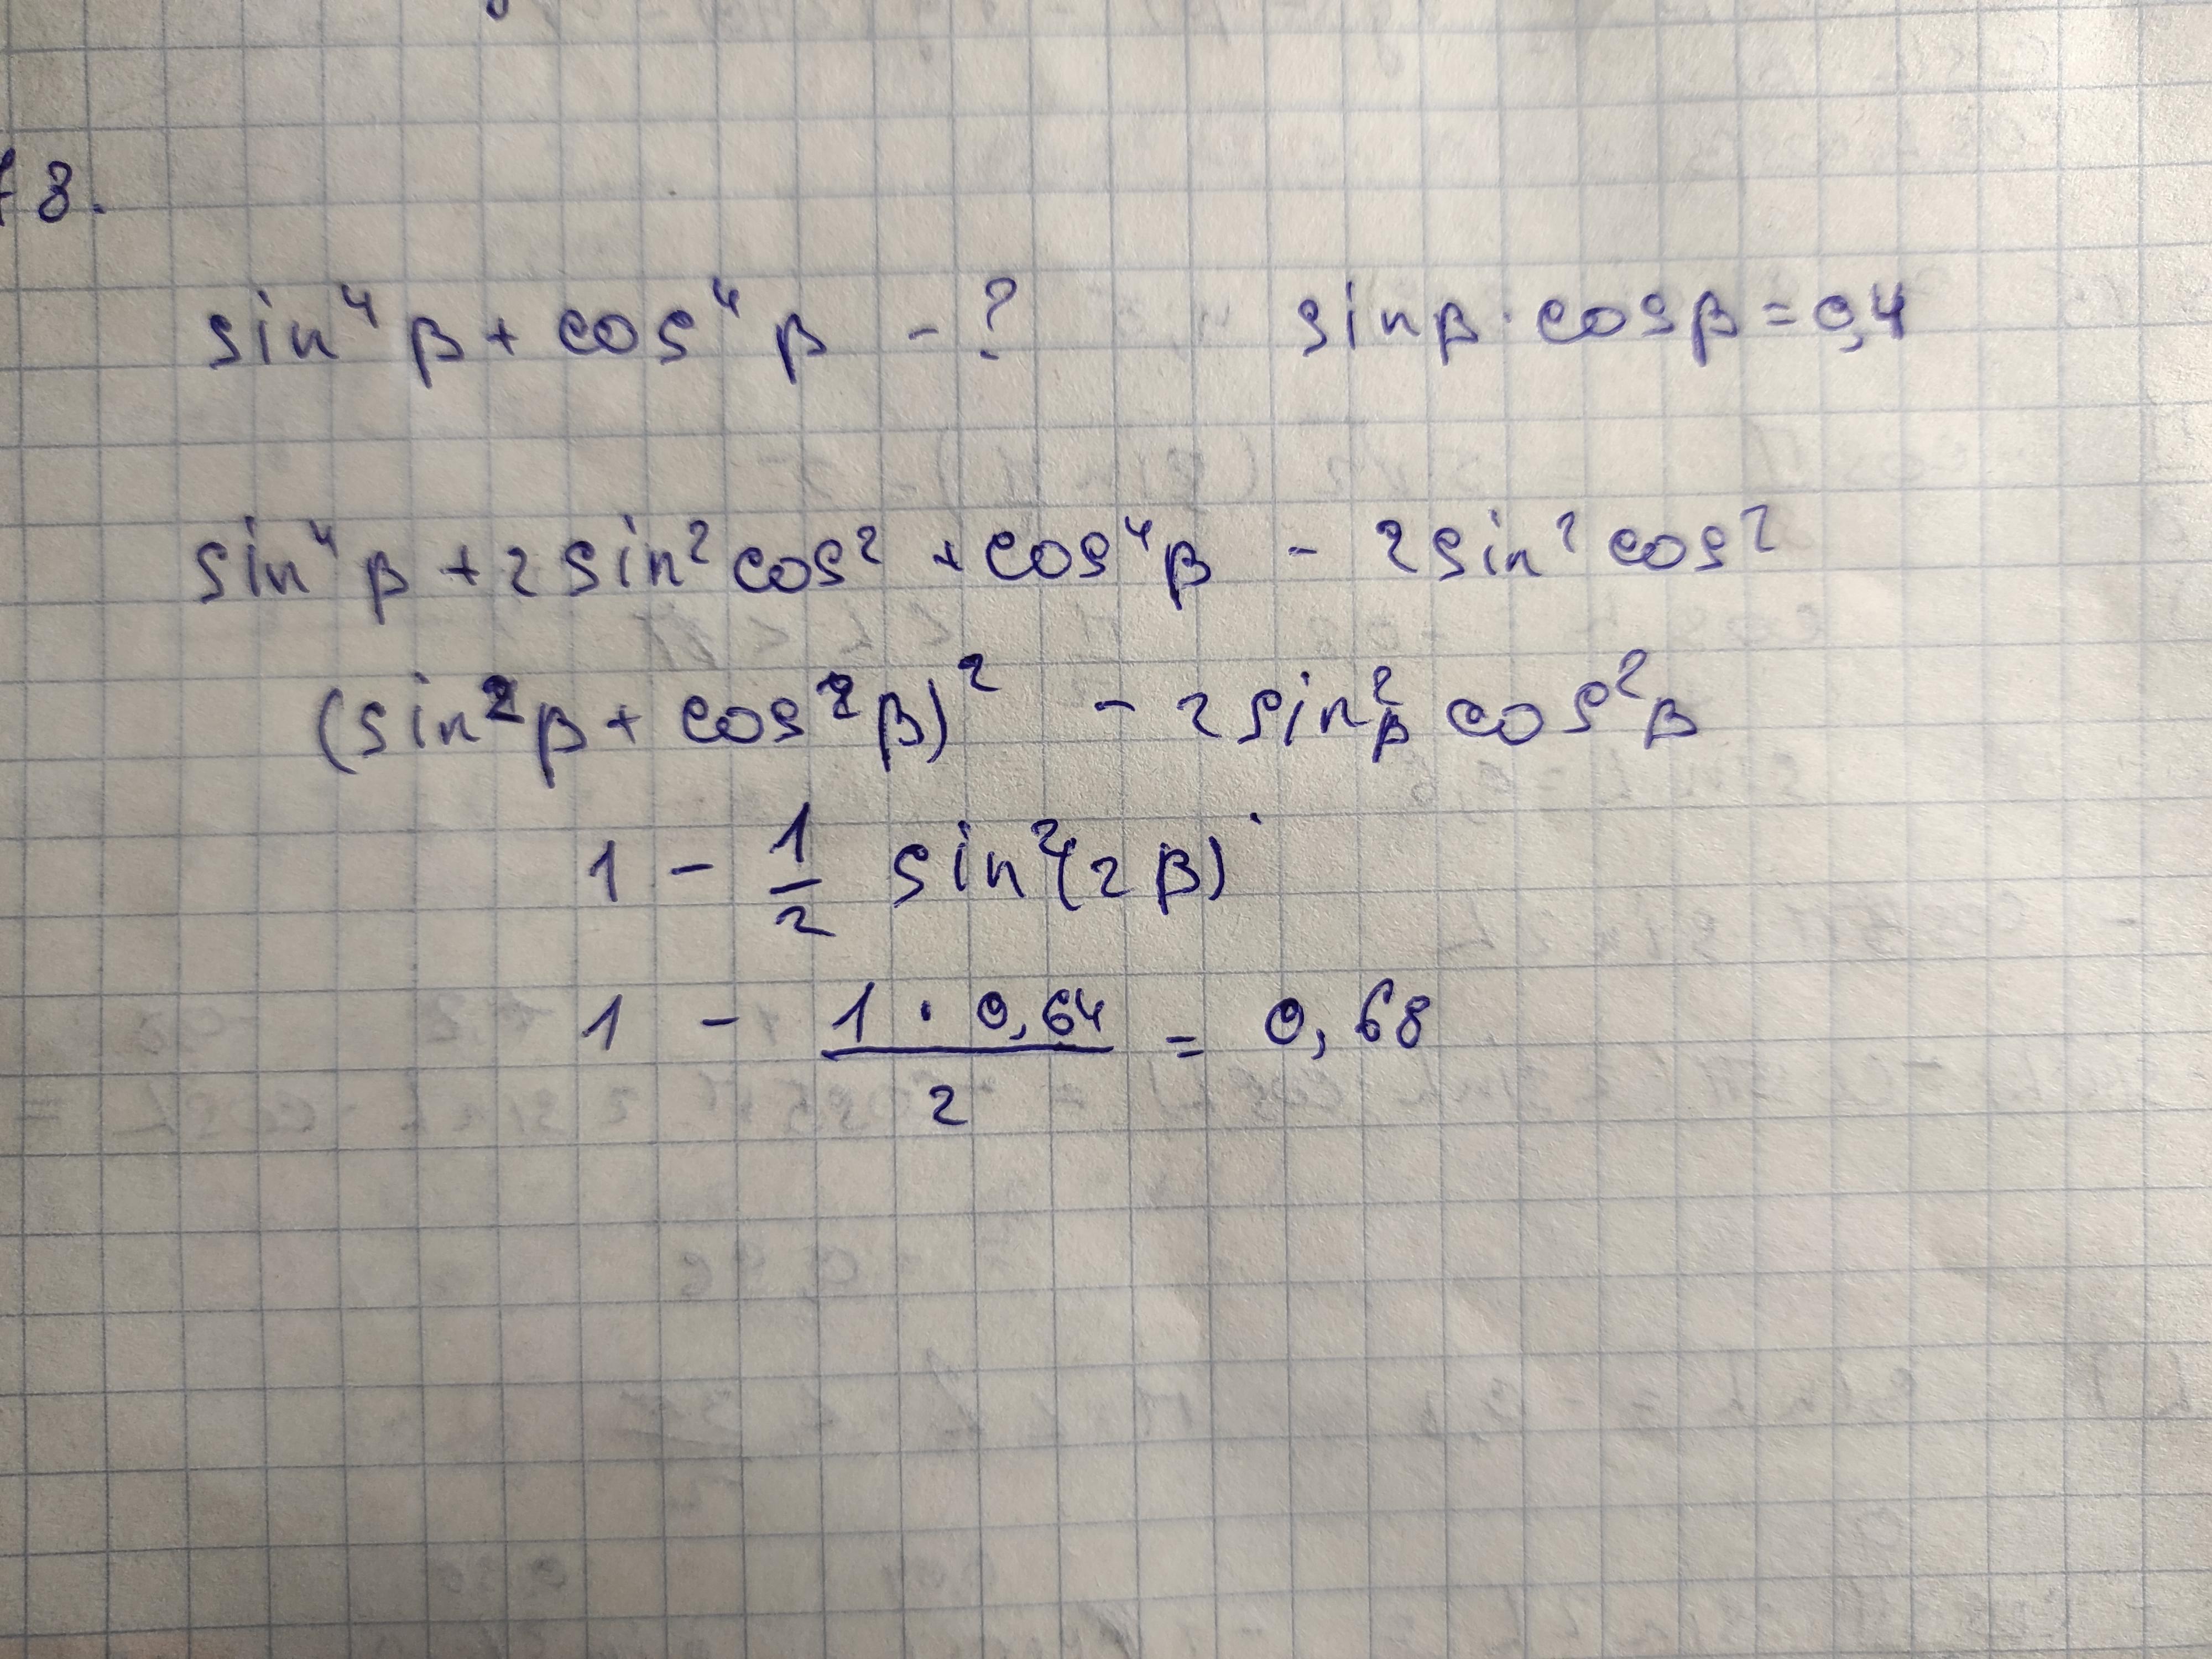 8.
sin⁴β + cos⁴β - ? sinβ · cosβ = 0,4
sin⁴β + 2 sin² cos² + cos⁴β - 2 sin² cos²
(sin²β + cos²β)² - 2 sin²β cos²β
1 - 1/2 sin²(2β)
1 - (1 · 0,64)/2 = 0,68